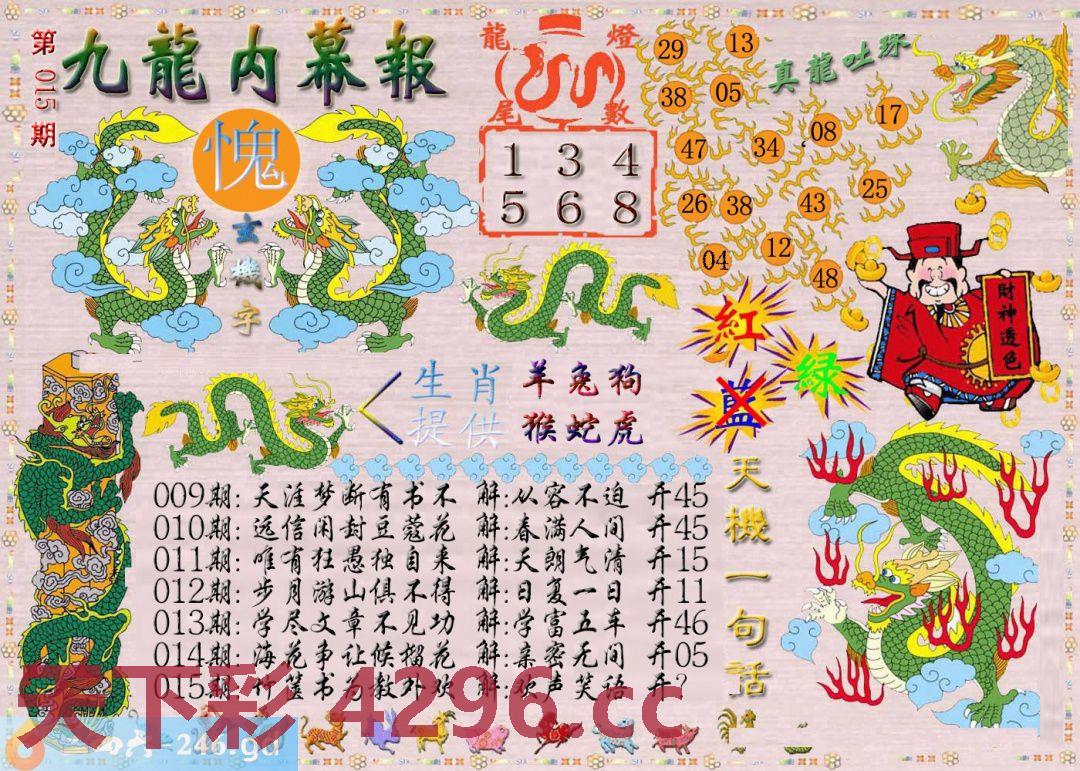 第015期
九龍内幕報
愧
玄機字
龍尾燈數
1 3 4
5 6 8
真龍吐珠
29 13
38 05
47 34 08 17
26 38 43 25
04 12 48
財神透色
紅
綠
藍
生肖提供
羊兔狗
猴蛇虎
天機一句話
009期:天涯梦断有书不 解:从容不迫 开45
010期:远信闲封豆蔻花 解:春满人间 开45
011期:唯有狂愚独自来 解:天朗气清 开15
012期:步月游山俱不得 解:日复一日 开11
013期:学尽文章不见功 解:学富五车 开46
014期:海花争让候榴花 解:亲密无间 开05
015期:竹篮书为教外欢 解:欢声笑语 开?
天下彩 4296.cc
=246.gd